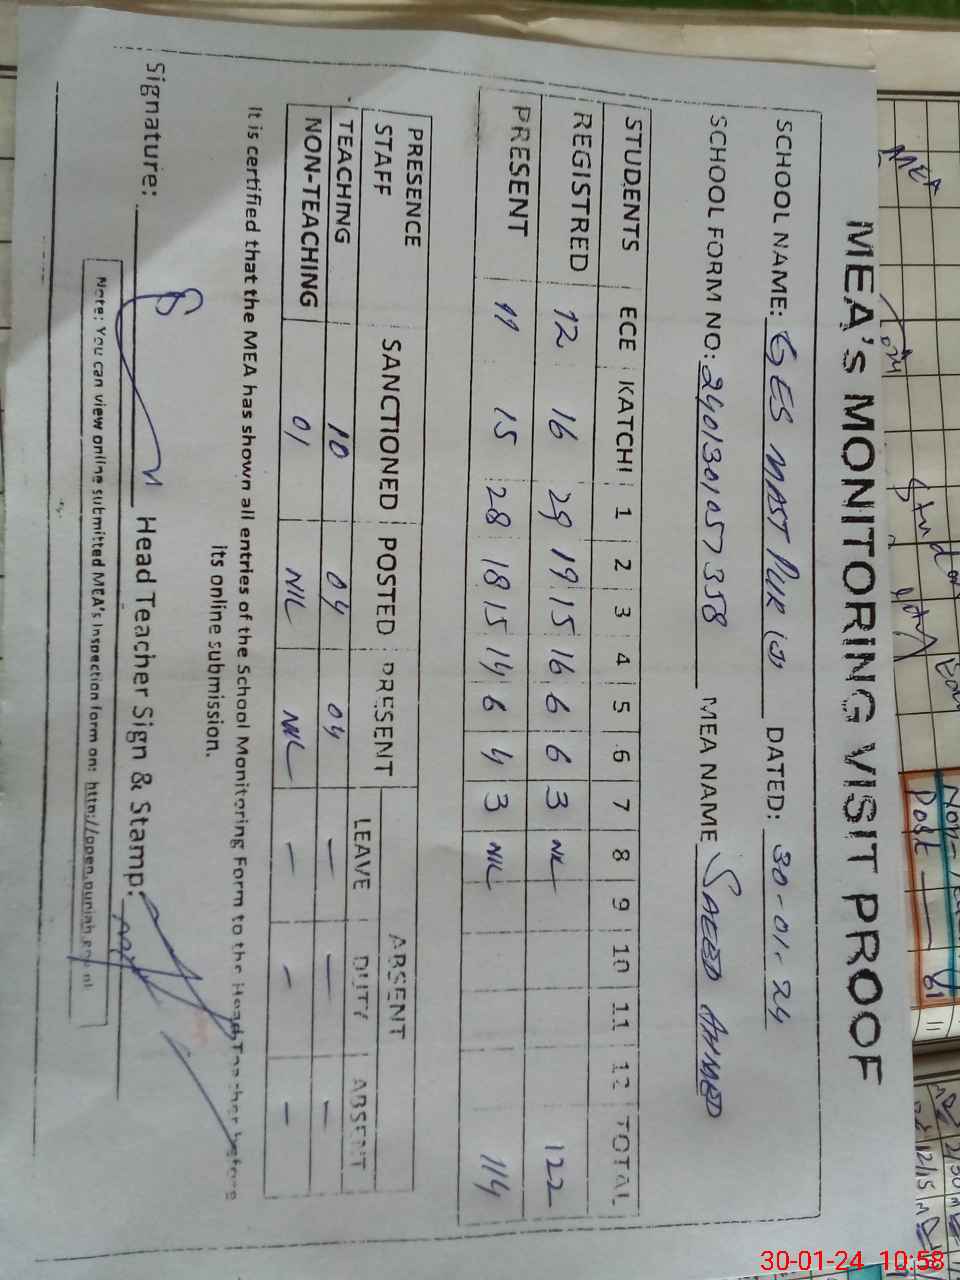 MEA's MONITORING VISIT PROOF
SCHOOL NAME: GES MAST PUR (J) DATED: 30-01-24
SCHOOL FORM NO: 2401301057358 MEA NAME SAEED AHMED
STUDENTS ECE KATCHI 1 2 3 4 5 6 7 8 9 10 11 12 TOTAL
REGISTRED 12 16 29 19 15 16 6 6 3 NIL 122
PRESENT 11 15 28 18 15 14 6 4 3 NIL 114
PRESENCE STAFF SANCTIONED POSTED PRESENT ABSENT
LEAVE DUTY ABSENT
TEACHING 10 04 04 — — —
NON-TEACHING 01 NIL NIL — — —
It is certified that the MEA has shown all entries of the School Monitoring Form to the Head Teacher before
its online submission.
Signature: Head Teacher Sign & Stamp:
Note: You can view online submitted MEA's Inspection form on: http://open.punjab.gov.pk
MEA
Post 01
30-01-24 10:58